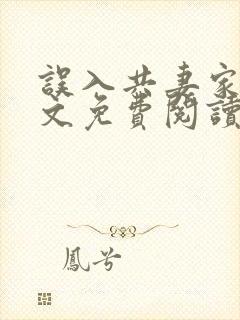 誤入共妻家
文免費閱讀
鳳兮